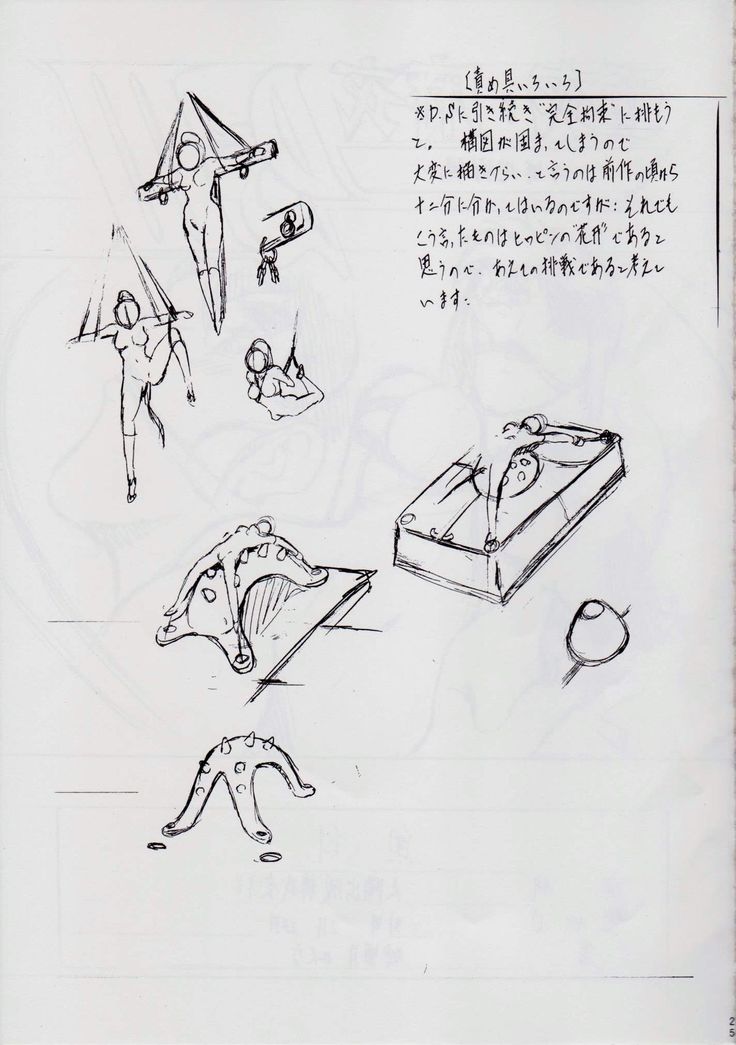 〔責め具いろいろ〕
※D.Sに引き続き"完全拘束"に挑もう
と。構図が固まってしまうので
大変に描きづらい、と言うのは前作の頃から
十二分に分かってはいるのですが…それでも
こう言ったものはヒロピンの"花形"であると
思うので、あえての挑戦であると考えて
います…
25